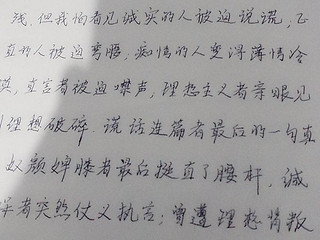 浅.但我怕看见诚实的人被迫说谎,正
直的人被迫弯腰,痴情的人变得薄情冷
漠,直言者被迫噤声,理想主义者亲眼见
到理想破碎.谎话连篇者最后的一句真
奴颜婢膝者最后挺直了腰杆,缄
默者突然仗义执言;曾遭理想背叛